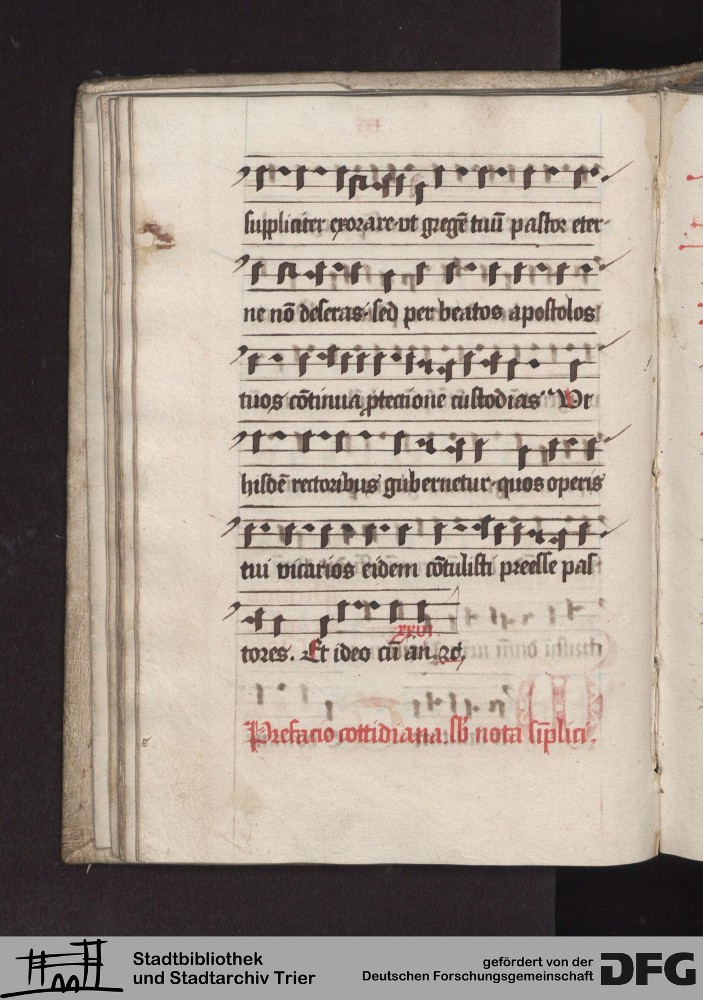 suppliciter exorare·ut gregē tuū pastor eter-
ne nō deseras·sed per beatos apostolos
tuos cōtinua ꝓtectione custodias Ut
hisdē rectoribus gubernetur·quos operis
tui vicarios eidem cōtulisti preesse pas-
xxvi
tores. Et ideo cū an ꝛc̄.
Prefacio cottidiana. sb nota sīplici.
Stadtbibliothek
und Stadtarchiv Trier
gefördert von der
Deutschen Forschungsgemeinschaft
DFG